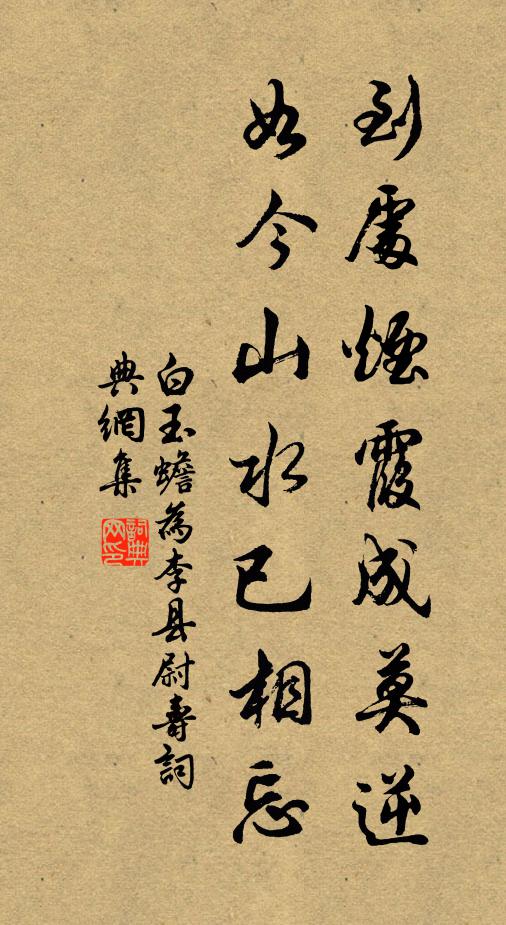 到處煙霞成莫逆
如今山水已相忘
白玉蟾為李县尉壽詞
典網集
詞典网印